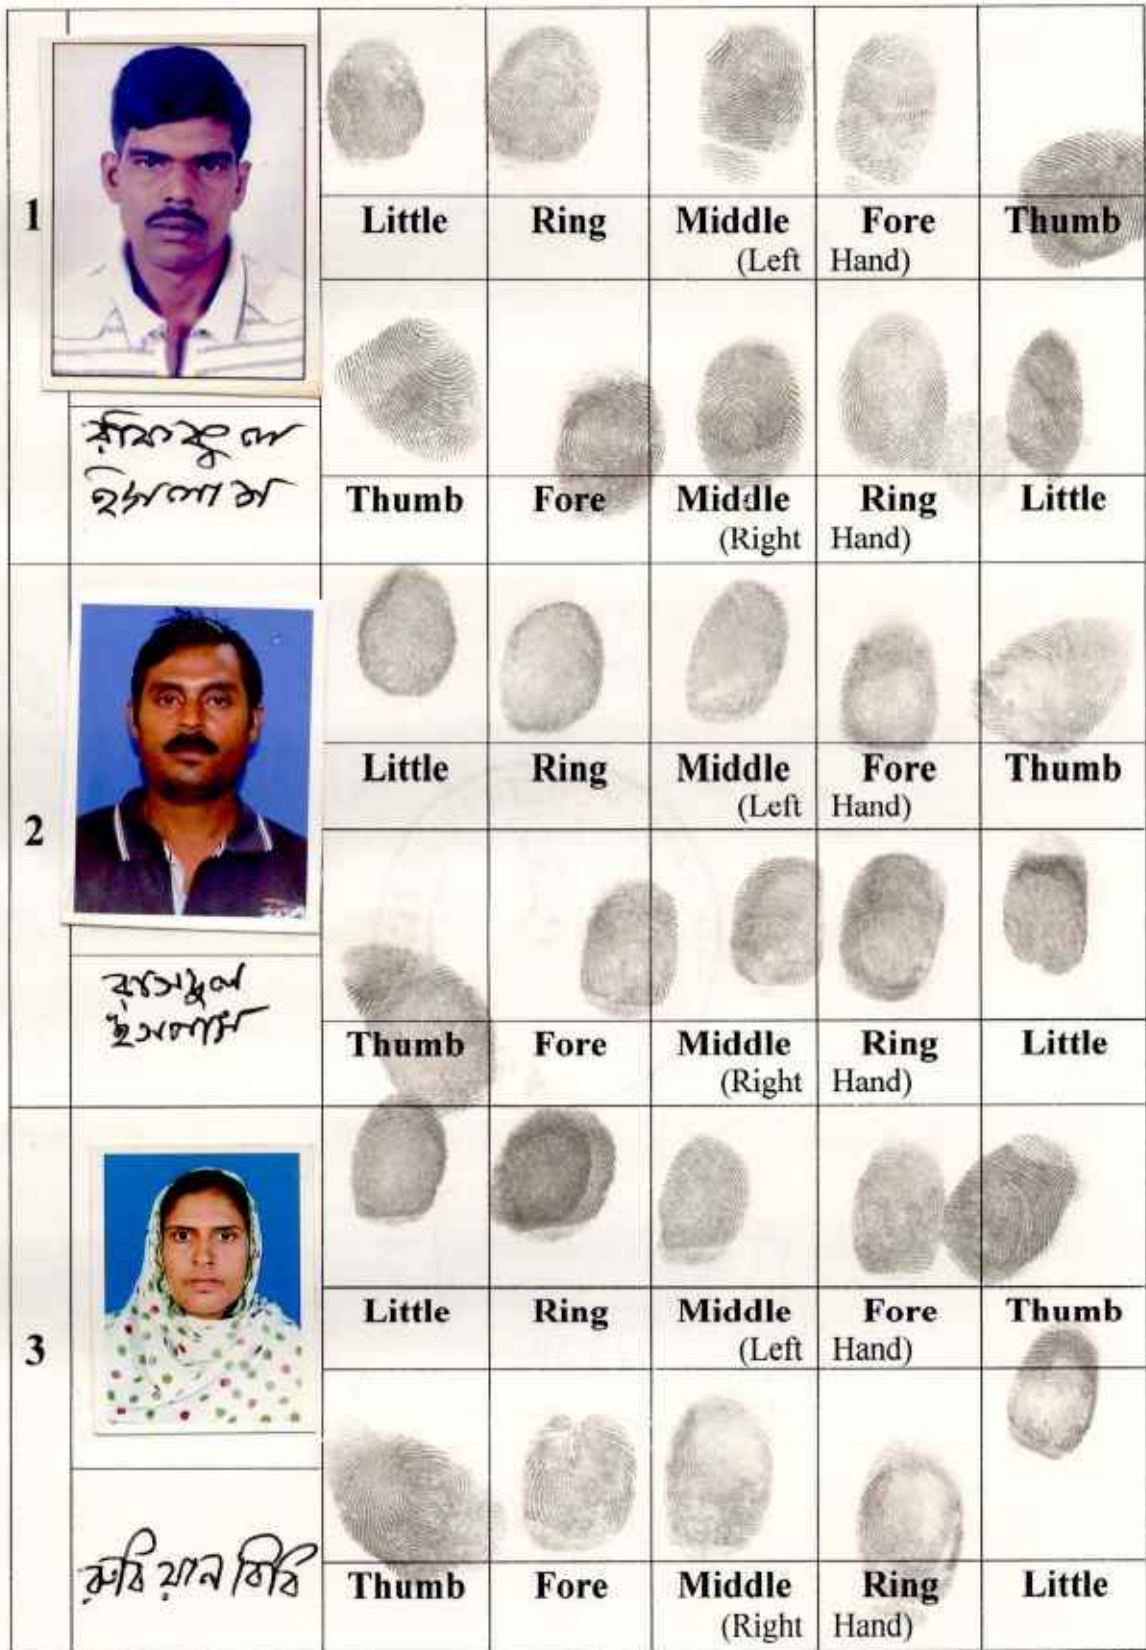 1
Little Ring Middle Fore Thumb
(Left Hand)
রফিকুল
ইসলাম
Thumb Fore Middle Ring Little
(Right Hand)
2
Little Ring Middle Fore Thumb
(Left Hand)
ইসলাম
Thumb Fore Middle Ring Little
(Right Hand)
3
Little Ring Middle Fore Thumb
(Left Hand)
বিবি
Thumb Fore Middle Ring Little
(Right Hand)